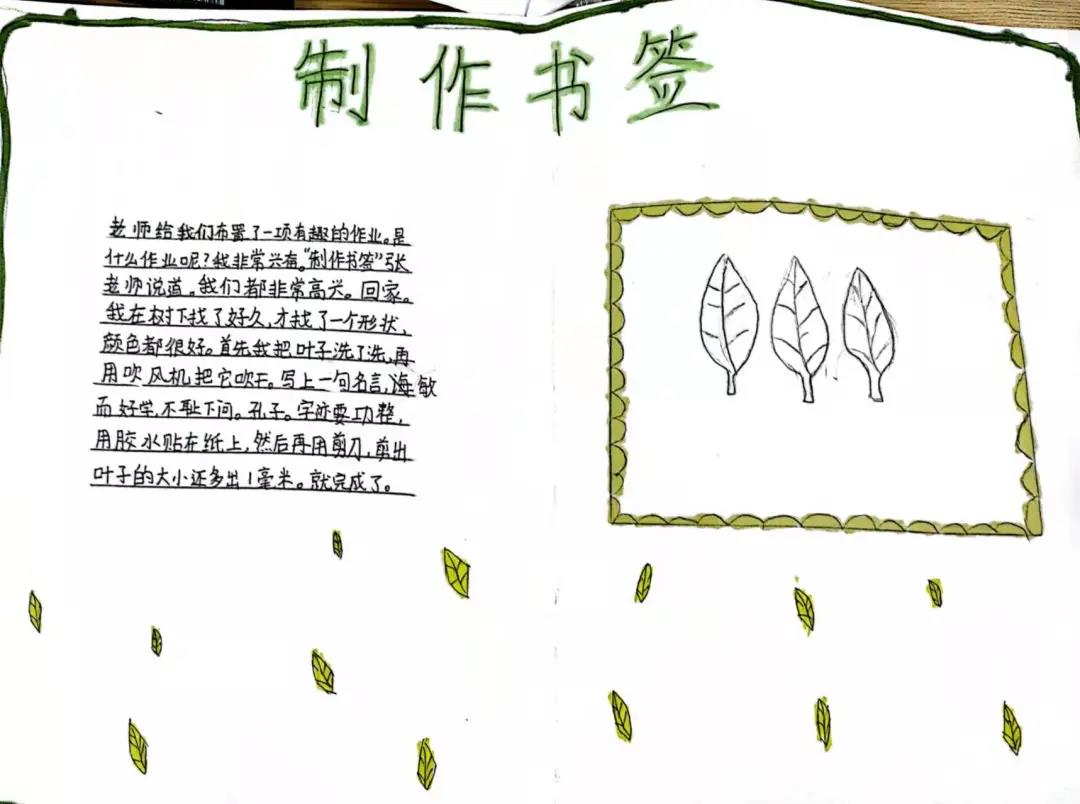 制作书签
老师给我们布置了一项有趣的作业。是
什么作业呢？我非常兴有。“制作书签”张
老师说道。我们都非常高兴。回家。
我在树下找了好久，才找了一个形状，
颜色都很好。首先我把叶子洗了洗，再
用吹风机把它吹干。写上一句名言，海敏
而好学，不耻下问。孔子。字迹要功整，
用胶水贴在纸上，然后再用剪刀，剪出
叶子的大小还多出1毫米。就完成了。